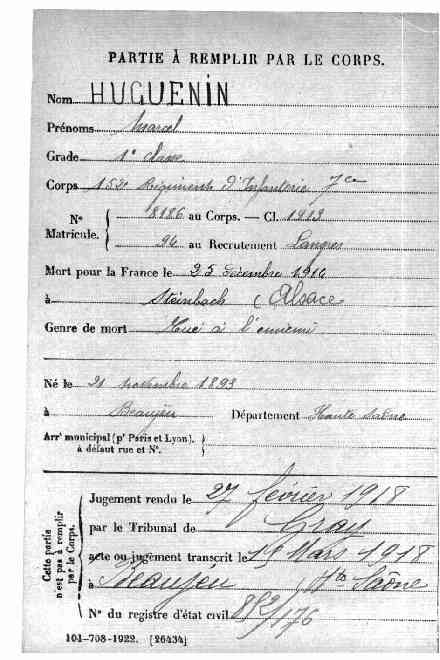 PARTIE À REMPLIR PAR LE CORPS.
Nom HUGUENIN
Prénoms Marcel
Grade 1e classe
Corps 152e Régiment d'Infanterie 7ce
N° Matricule. { 8186 au Corps. — Cl. 1913
94 au Recrutement Langres
Mort pour la France le 25 décembre 1914
à Steinbach (Alsace
Genre de mort Tué à l'ennemi
Né le 21 novembre 1893
à Beaujeu Département Haute Saône
Arrt municipal (pr Paris et Lyon), à défaut rue et N°. }
Cette partie n'est pas à remplir par le Corps.
Jugement rendu le 27 février 1918
par le Tribunal de Gray
acte ou jugement transcrit le 19 Mars 1918
à Beaujeu (Hte Saône
N° du registre d'état civil 852/176
101-708-1922. [26434]